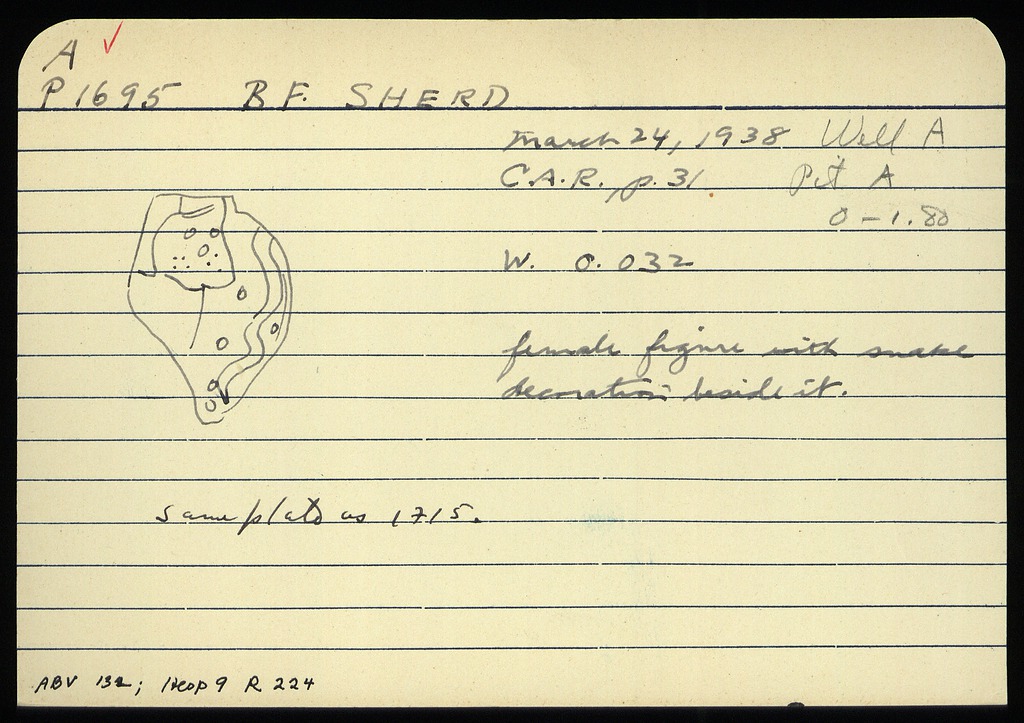 A ✓
P 1695 B F. SHERD
March 24, 1938 Well A
C.A.R., p. 31 Pit A
0 - 1.80
W. 0.032
female figure with snake
decoration beside it.
same plate as 1715.
ABV 132; R 224